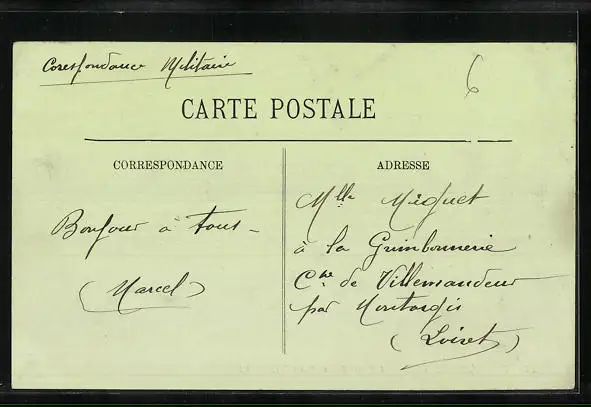 Corespondance Militaire
6
CARTE POSTALE
CORRESPONDANCE
Bonjour à tous -
(Marcel)
ADRESSE
Mlle Miquet
à la Grimbonnerie
Cne de Villemandeur
par Montargis
(Loiret)